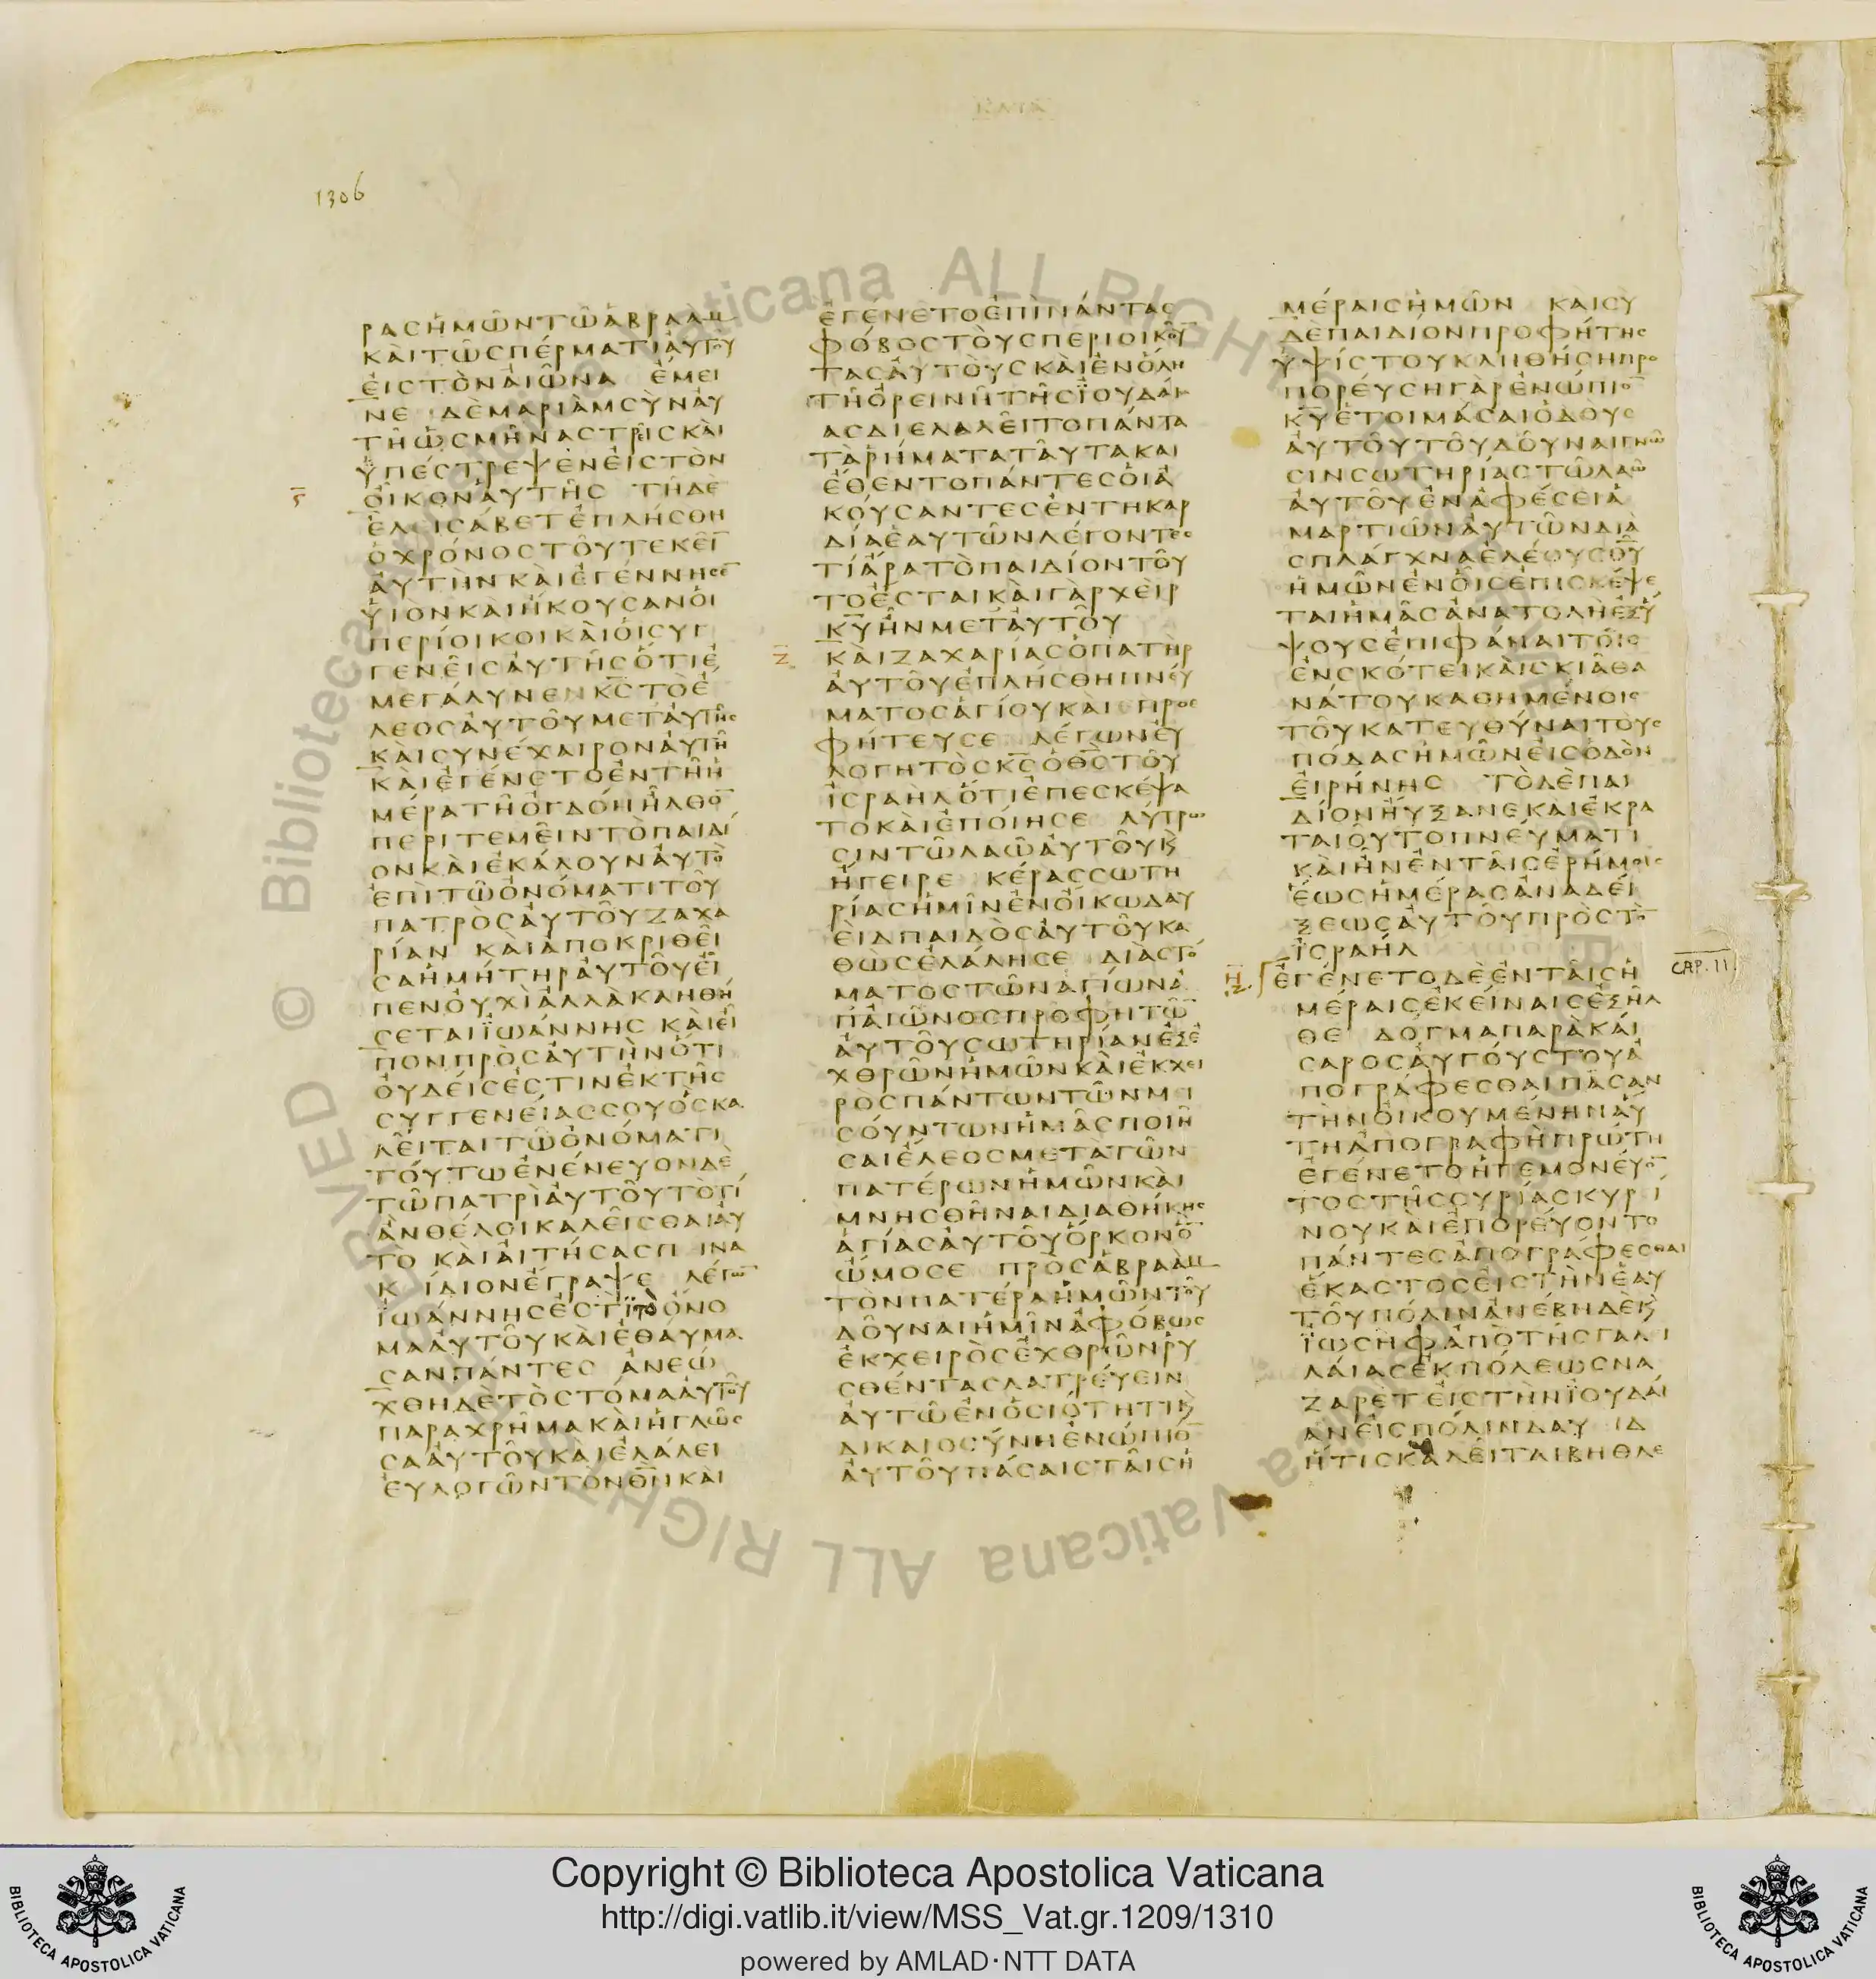 1306
ΡΑΣΗΜΩΝΤΩΑΒΡΑΑΜ
ΚΑΙΤΩΣΠΕΡΜΑΤΙΑΥΤΟΥ
ΕΙΣΤΟΝΑΙΩΝΑ ΕΜΕΙ
ΝΕ ΔΕΜΑΡΙΑΜΣΥΝΑΥ
ΤΗΩΣΜΗΝΑΣΤΡΕΙΣΚΑΙ
ΫΠΕΣΤΡΕΨΕΝΕΙΣΤΟΝ
ΟΙΚΟΝΑΥΤΗΣ ΤΗΔΕ
ΕΛΕΙΣΑΒΕΤΕΠΛΗΣΘΗ
ΟΧΡΟΝΟΣΤΟΥΤΕΚΕΙ̅
ΑΥΤΗΝΚΑΙΕΓΕΝΝΗΣΕ̅
ΥΙΟΝΚΑΙΗΚΟΥΣΑΝΟΙ
ΠΕΡΙΟΙΚΟΙΚΑΙΟΙΣΥΓ
ΓΕΝΕΙΣΑΥΤΗΣΟΤΙΕ
ΜΕΓΑΛΥΝΕΝΚ̅Σ̅ΤΟΕ
ΛΕΟΣΑΥΤΟΥΜΕΤΑΥΤΗΣ
ΚΑΙΣΥΝΕΧΑΙΡΟΝΑΥΤΗ
ΚΑΙΕΓΕΝΕΤΟΕΝΤΗΗ
ΜΕΡΑΤΗΟΓΔΟΗΗΛΘΟ̅
ΠΕΡΙΤΕΜΕΙΝΤΟΠΑΙΔΙ
ΟΝΚΑΙΕΚΑΛΟΥΝΑΥΤΟ
ΕΠΙΤΩΟΝΟΜΑΤΙΤΟΥ
ΠΑΤΡΟΣΑΥΤΟΥΖΑΧΑ
ΡΙΑΝ ΚΑΙΑΠΟΚΡΙΘΕΙ
ΣΑΗΜΗΤΗΡΑΥΤΟΥΕΙ
ΠΕΝΟΥΧΙΑΛΛΑΚΛΗΘΗ
ΣΕΤΑΙΪΩΑΝΝΗΣ ΚΑΙΕΙ
ΠΟΝΠΡΟΣΑΥΤΗΝΟΤΙ
ΟΥΔΕΙΣΕΣΤΙΝΕΚΤΗΣ
ΣΥΓΓΕΝΕΙΑΣΣΟΥΟΣΚΑ
ΛΕΙΤΑΙΤΩΟΝΟΜΑΤΙ
ΤΟΥΤΩΕΝΕΝΕΥΟΝΔΕ
ΤΩΠΑΤΡΙΑΥΤΟΥΤΟΤΙ
ΑΝΘΕΛΟΙΚΑΛΕΙΣΘΑΙΑΥ
ΤΟ ΚΑΙΑΙΤΗΣΑΣΠΙΝΑ
ΚΙΔΙΟΝΕΓΡΑΨΕ ΛΕΓΩ̅
ΪΩΑΝΝΗΣΕΣΤΙ̅ΤΟΟΝΟ
ΜΑΑΥΤΟΥΚΑΙΕΘΑΥΜΑ
ΣΑΝΠΑΝΤΕΣ ΑΝΕΩ
ΧΘΗΔΕΤΟΣΤΟΜΑΑΥΤΟΥ
ΠΑΡΑΧΡΗΜΑΚΑΙΗΓΛΩΣ
ΣΑΑΥΤΟΥΚΑΙΕΛΑΛΕΙ
ΕΥΛΟΓΩΝΤΟΝΘ̅Ν̅ΚΑΙ
ΕΓΕΝΕΤΟΕΠΙΠΑΝΤΑΣ
ΦΟΒΟΣΤΟΥΣΠΕΡΙΟΙΚΟΥ̅
ΤΑΣΑΥΤΟΥΣΚΑΙΕΝΟΛΗ
ΤΗΟΡΕΙΝΗΤΗΣΪΟΥΔΑΙ
ΑΣΔΙΕΛΑΛΕΙΤΟΠΑΝΤΑ
ΤΑΡΗΜΑΤΑΤΑΥΤΑΚΑΙ
ΕΘΕΝΤΟΠΑΝΤΕΣΟΙΑ
ΚΟΥΣΑΝΤΕΣΕΝΤΗΚΑΡ
ΔΙΑΕΑΥΤΩΝΛΕΓΟΝΤΕΣ
ΤΙΑΡΑΤΟΠΑΙΔΙΟΝΤΟΥ
ΤΟΕΣΤΑΙΚΑΙΓΑΡΧΕΙΡ
Κ̅Υ̅ΗΝΜΕΤΑΥΤΟΥ
Ζ̅ ΚΑΙΖΑΧΑΡΙΑΣΟΠΑΤΗΡ
ΑΥΤΟΥΕΠΛΗΣΘΗΠΝΕΥ
ΜΑΤΟΣΑΓΙΟΥΚΑΙ ΠΡΟΕ
ΦΗΤΕΥΣΕ ΛΕΓΩΝΕΥ
ΛΟΓΗΤΟΣΚ̅Σ̅ΟΘ̅Σ̅ΤΟΥ
ΙΣΡΑΗΛΟΤΙΕΠΕΣΚΕΨΑ
ΤΟΚΑΙΕΠΟΙΗΣΕ ΛΥΤΡΩ
ΣΙΝΤΩΛΑΩΑΥΤΟΥΚ
ΗΓΕΙΡΕ ΚΕΡΑΣΣΩΤΗ
ΡΙΑΣΗΜΙΝΕΝΟΙΚΩΔΑΥ
ΕΙΔΠΑΙΔΟΣΑΥΤΟΥΚΑ
ΘΩΣΕΛΑΛΗΣΕ ΔΙΑΣΤΟ
ΜΑΤΟΣΤΩΝΑΓΙΩΝΑ
ΠΑΙΩΝΟΣΠΡΟΦΗΤΩ̅
ΑΥΤΟΥΣΩΤΗΡΙΑΝΕΞΕ
ΧΘΡΩΝΗΜΩΝΚΑΙΕΚΧΕΙ
ΡΟΣΠΑΝΤΩΝΤΩΝΜΙ
ΣΟΥΝΤΩΝΗΜΑΣΠΟΙΗ
ΣΑΙΕΛΕΟΣΜΕΤΑΤΩΝ
ΠΑΤΕΡΩΝΗΜΩΝΚΑΙ
ΜΝΗΣΘΗΝΑΙΔΙΑΘΗΚΗΣ
ΑΓΙΑΣΑΥΤΟΥΟΡΚΟΝΟ̅
ΩΜΟΣΕ ΠΡΟΣΑΒΡΑΑΜ
ΤΟΝΠΑΤΕΡΑΗΜΩΝΤΟΥ
ΔΟΥΝΑΙΗΜΙΝΑΦΟΒΩΣ
ΕΚΧΕΙΡΟΣΕΧΘΡΩΝΡΥ
ΣΘΕΝΤΑΣΛΑΤΡΕΥΕΙΝ
ΑΥΤΩΕΝΟΣΙΟΤΗΤΙΚ
ΔΙΚΑΙΟΣΥΝΗΕΝΩΠΙΟ̅
ΑΥΤΟΥΠΑΣΑΙΣΤΑΙΣΗ
ΜΕΡΑΙΣΗΜΩΝ ΚΑΙΣΥ
ΔΕΠΑΙΔΙΟΝΠΡΟΦΗΤΗΣ
ΥΨΙΣΤΟΥΚΛΗΘΗΣΗΠΡΟ
ΠΟΡΕΥΣΗΓΑΡΕΝΩΠΙΟ̅
Κ̅Υ̅ΕΤΟΙΜΑΣΑΙΟΔΟΥΣ
ΑΥΤΟΥΤΟΥΔΟΥΝΑΙΓΝΩ
ΣΙΝΣΩΤΗΡΙΑΣΤΩΛΑΩ
ΑΥΤΟΥΕΝΑΦΕΣΕΙΑ
ΜΑΡΤΙΩΝΑΥΤΩΝΔΙΑ
ΣΠΛΑΓΧΝΑΕΛΕΟΥΣΘ̅Υ̅
ΗΜΩΝΕΝΟΙΣΕΠΙΣΚΕΨΕ
ΤΑΙΗΜΑΣΑΝΑΤΟΛΗΕΞΥ
ΨΟΥΣΕΠΙΦΑΝΑΙΤΟΙΣ
ΕΝΣΚΟΤΕΙΚΑΙΣΚΙΑΘΑ
ΝΑΤΟΥΚΑΘΗΜΕΝΟΙΣ
ΤΟΥΚΑΤΕΥΘΥΝΑΙΤΟΥΣ
ΠΟΔΑΣΗΜΩΝΕΙΣΟΔΟΝ
ΕΙΡΗΝΗΣ ΤΟΔΕΠΑΙ
ΔΙΟΝΗΥΞΑΝΕΚΑΙΕΚΡΑ
ΤΑΙΟΥΤΟΠΝΕΥΜΑΤΙ
ΚΑΙΗΝΕΝΤΑΙΣΕΡΗΜΟΙΣ
ΕΩΣΗΜΕΡΑΣΑΝΑΔΕΙ
ΞΕΩΣΑΥΤΟΥΠΡΟΣΤΟ̅
ΙΣΡΑΗΛ
Η̅ ΕΓΕΝΕΤΟΔΕΕΝΤΑΙΣΗ CAP. II
ΜΕΡΑΙΣΕΚΕΙΝΑΙΣΕΞΗΛ
ΘΕ ΔΟΓΜΑΠΑΡΑΚΑΙ
ΣΑΡΟΣΑΥΓΟΥΣΤΟΥΑ
ΠΟΓΡΑΦΕΣΘΑΙΠΑΣΑΝ
ΤΗΝΟΙΚΟΥΜΕΝΗΝΑΥ
ΤΗΑΠΟΓΡΑΦΗΠΡΩΤΗ
ΕΓΕΝΕΤΟΗΓΕΜΟΝΕΥΟ̅
ΤΟΣΤΗΣΣΥΡΙΑΣΚΥΡΙ
ΝΟΥΚΑΙΕΠΟΡΕΥΟΝΤΟ
ΠΑΝΤΕΣΑΠΟΓΡΑΦΕΣΘΑΙ
ΕΚΑΣΤΟΣΕΙΣΤΗΝΕΑΥ
ΤΟΥΠΟΛΙΝΑΝΕΒΗΔΕΚ
ΪΩΣΗΦΑΠΟΤΗΣΓΑΛΙ
ΛΑΙΑΣΕΚΠΟΛΕΩΣΝΑ
ΖΑΡΕΤΕΙΣΤΗΝΪΟΥΔΑΙ
ΑΝΕΙΣΠΟΛΙΝΔΑΥΙΔ
ΗΤΙΣΚΑΛΕΙΤΑΙΒΗΘΛΕ
Copyright © Biblioteca Apostolica Vaticana
http://digi.vatlib.it/view/MSS_Vat.gr.1209/1310
powered by AMLAD·NTT DATA
BIBLIOTECA APOSTOLICA VATICANA
BIBLIOTECA APOSTOLICA VATICANA